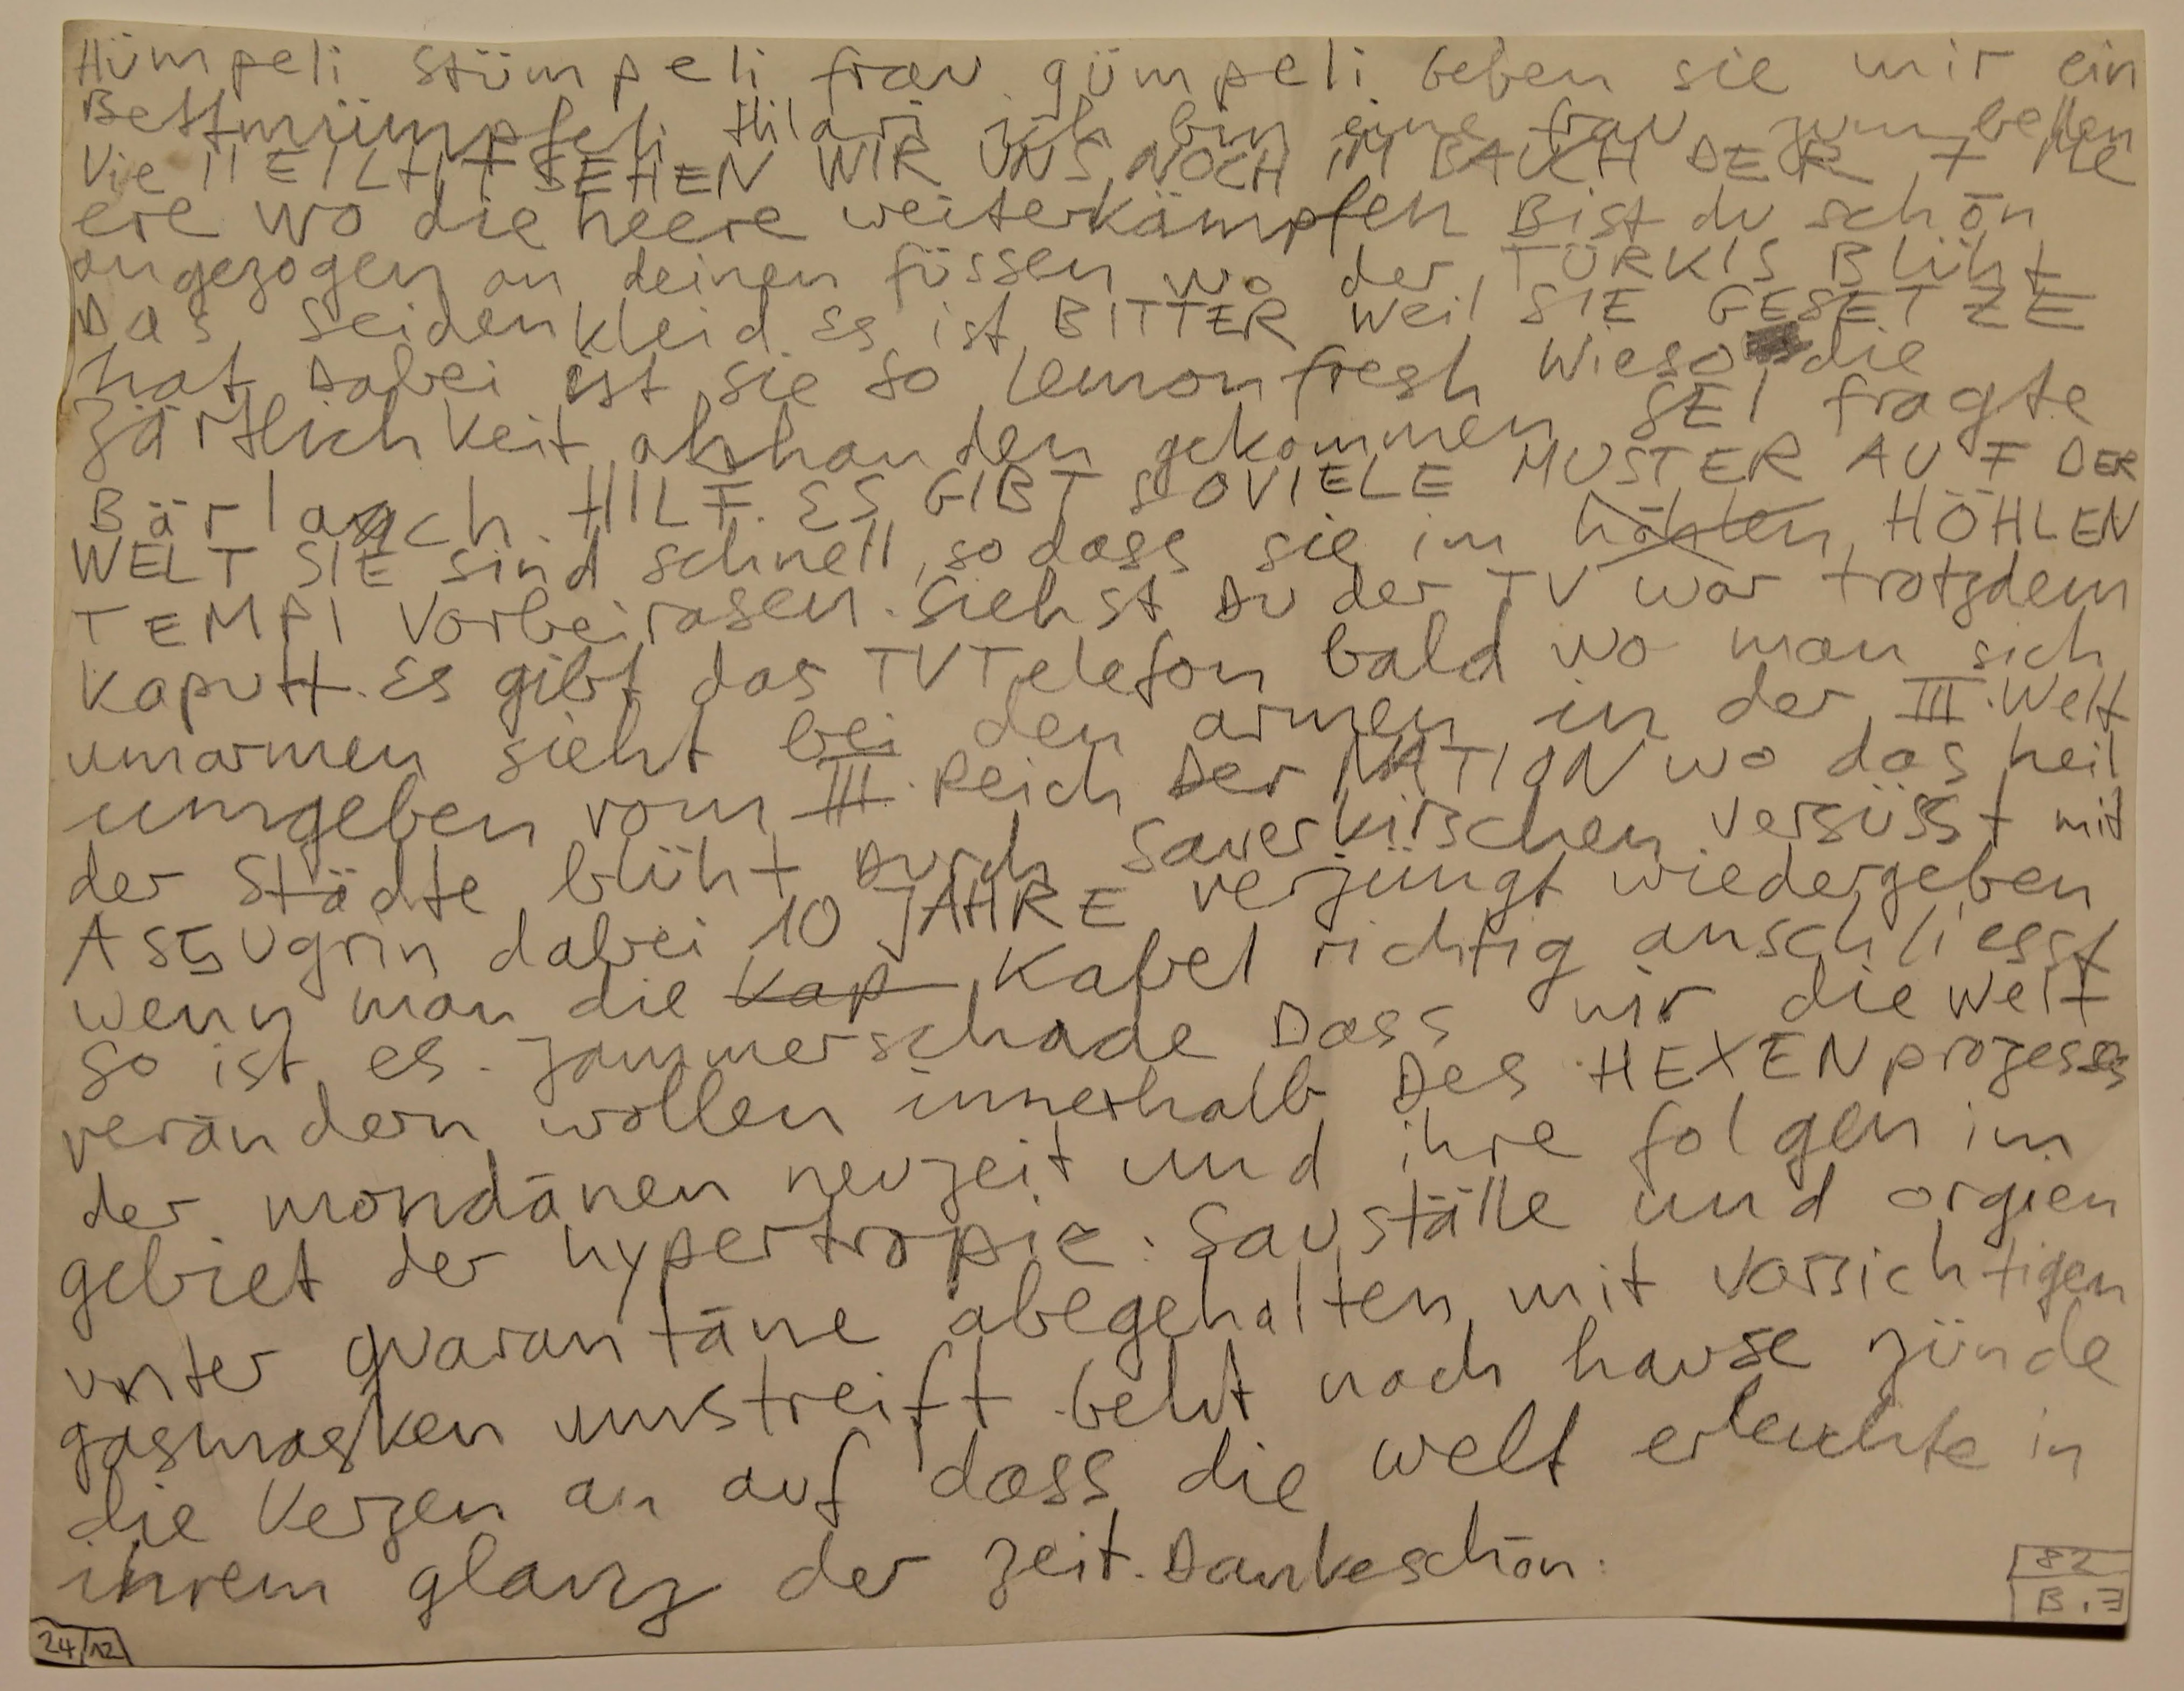 Hümpeli stümpeli frau gümpeli Geben sie mir ein
Bettmümpfeli Hilari ich bin eine frau zum bellen
VielleICHT SEHEN WIR UNS NOCH IM BAUCH DER 7 Me
ere wo die heere weiterkämpfen Bist du schön
angezogen an deinen füssen wo der TÜRKIS Blüht
Das Seidenkleid. Es ist BITTER weil SIE GESETZE
hat Dabei ist sie so lemonfresh Wieso die
Zärtlichkeit abhanden gekommen SEI fragte
Bärlach. HILF. ES GIBT SOVIELE MUSTER AUF DER
WELT SIE sind schnell, sodass sie im höhlen HÖHLEN
TEMPI vorbeirasen. Siehst Du der TV war trotzdem
kaputt. Es gibt das TVTelefon bald wo man sich
umarmen sieht bei den armen in der III. Welt
umgeben vom III. Reich Der NATION wo das heil
der Städte blüht Durch Sauerkirschen versüsst mit
ASSugrin dabei 10 JAHRE verjüngt wiedergeben
wenn man die Kap Kabel richtig anschliesst
so ist es. Jammerschade Dass wir die welt
verändern wollen innerhalb Des HEXENprozesses
der mondänen neuzeit und ihre folgen im
gebiet der hypertropie: Sauställe und orgien
unter quarantäne abegehalten mit vorsichtigen
gasmasken umstreift. Geht nach hause zünde
die Kerzen an auf dass die welt erleuchte in
ihrem glanz der zeit. Dankeschön.
82
B.E
24/12